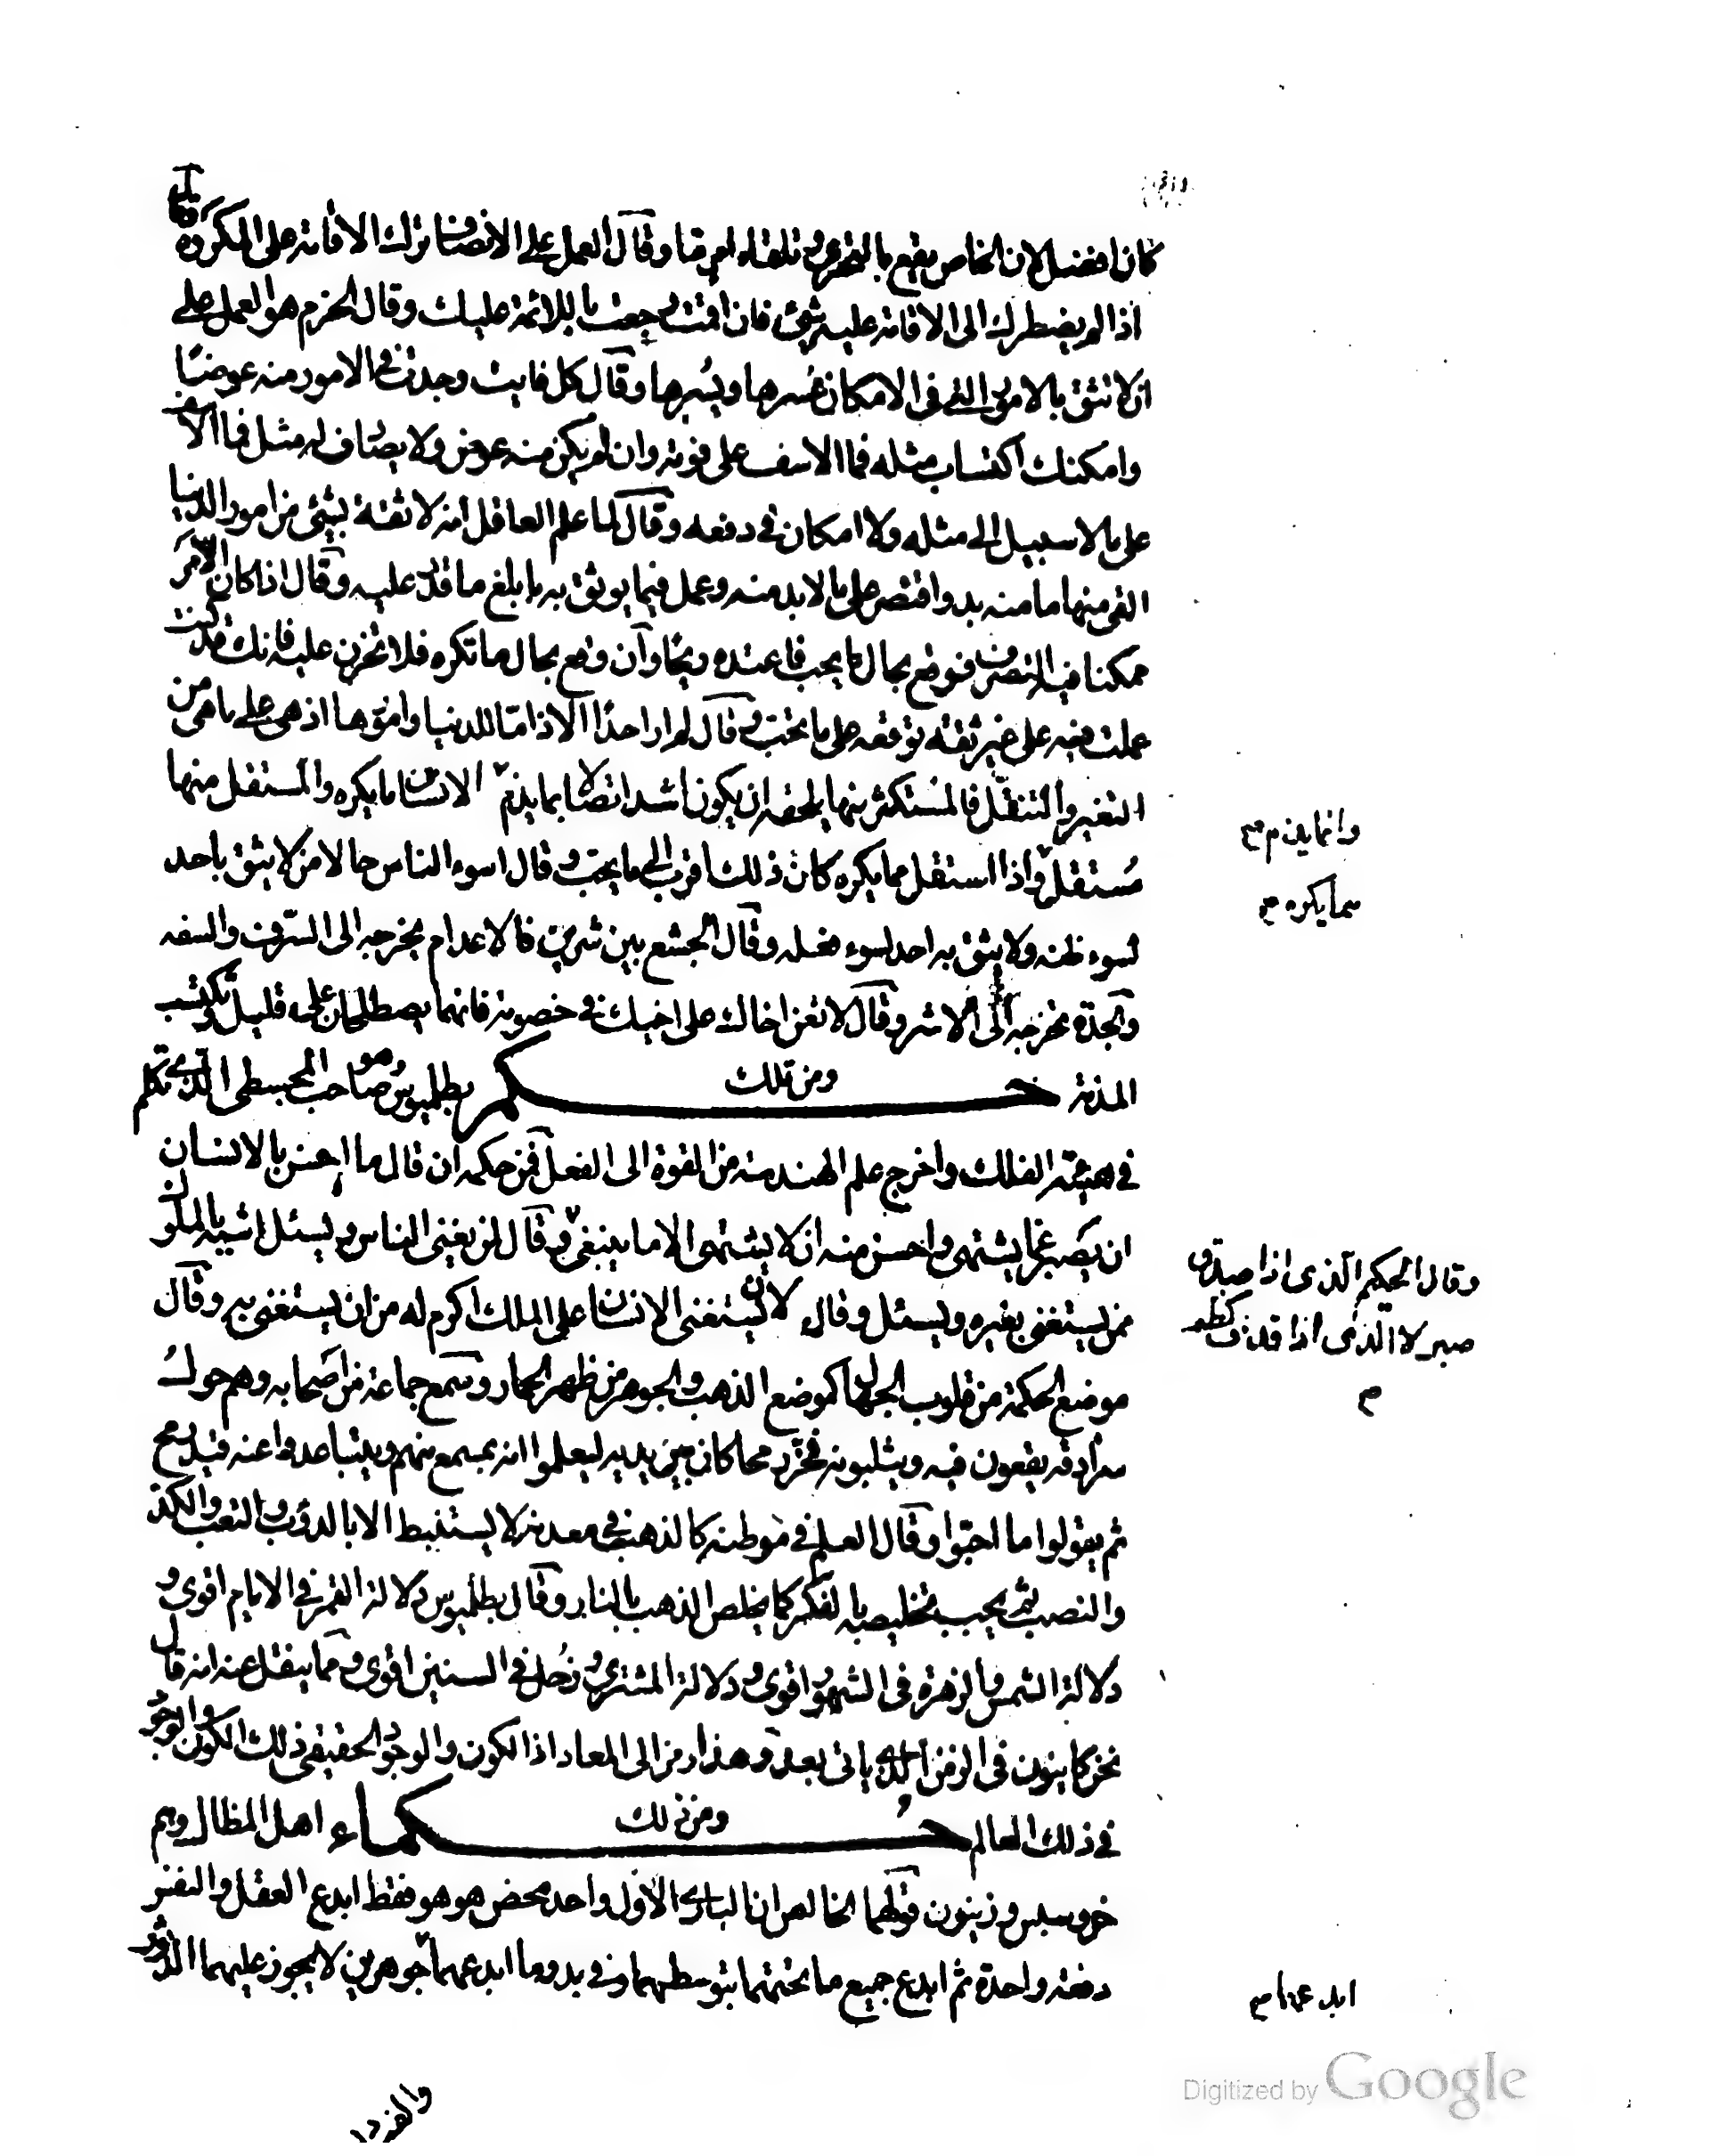 كان افضل لان الخاص يقع بالتحري وتلقاء امر ما وقال العمل على الانصاف ترك الاقامة على المكروه وقال
اذا لم يضطرك الى الاقامة عليه شئ فان اقمت رجعت باللائمة عليك وقال الحزم هو العمل على
ان لا تثق بالامور التي في الامكان عسرها ويسرها وقال كل فايت وجدت في الامور منه عوضا
وامكنك اكتساب مثله فما الاسف على فوته وان لم يكن منه عوض ولا يصاف له مثل فما الاسف
على مالا سبيل الى مثله ولا امكان في دفعه وقال لما علم العاقل انه لا ثقة بشئ من امور الدنيا
القى منها ما منه بد واقتصر على مالا بد منه وعمل فيما يوثق به بابلغ ما قدر عليه وقال اذا كان الامر
ممكنا فيه التصرف فوقع بحال ما يحب فاعتده ربحا وان وقع بحال ما تكره فلا تحزن عليه فانك قد كنت
عملت فيه على غير ثقة بوقفه على ما تحب وقال لم ار احدا الا ذاما للدنيا وامورها اذ هي على ما هي من
التغير والتنقل فالمستكثر منها يلحقه ان يكون اشد اتصالا بما يذم الانسان ما يكره والمستقل منها
مستقل واذا استقل مما يكره كان ذلك اقرب الى ما يحب وقال اسوء الناس حالا من لا يثق باحد
لسوء ظنه ولا يثق به احد لسوء فعله وقال الجشع بين شرين فالاعدام يخرجه الى السرف والسفه
والجدة تخرجه الى الاشر وقال لا تعن اخاك على اخيك في خصومة فانهما يصطلحان على قليل وتكتسب
المذمة ومن تلك حكم بطلميوس وهو صاحب المجسطي الذي تكلم
في هيئة الفلك واخرج علم الهندسة من القوة الى الفعل فمن حكمه ان قال ما احسن بالانسان
ان يصبر عما يشتهي واحسن منه ان لا يشتهي الا ما ينبغي وقال من يغني الناس ويسئل اشبه بالملوك
ممن يستغني بغيره ويسئل وقال لان يستغني الانسان على الملك اكرم له من ان يستغني به وقال
موضع الحكمة من قلوب الجهال كموضع الذهب والجوهر من ظهر الحمار وسمع جماعة من اصحابه وهم حول
سرادقه يقعون فيه ويثلبونه فهز رمحا كان بين يديه ليعلموا انه بمسمع منهم ويتباعدوا عنه قيد رمح
ثم يقولوا ما احبوا وقال العلم في موطنه كالذهب في معدنه لا يستنبط الا بالدؤب والتعب والكد
والنصب ثم يجب تخليصه بالفكر كما يخلص الذهب بالنار وقال بطلميوس دلالة القمر في الايام اقوى و
دلالة الشمس والزهرة في الشهور اقوى ودلالة المشتري وزحل في السنين اقوى ومما ينقل عنه انه قال
نحن كاينون في الزمن الذي ياتي بعد وهذا رمز الى المعاد اذ الكون والوجود الحقيقي ذلك الكون والوجود
في ذلك العالم ومن ذلك حكماء اهل المظال وهم
خروسبس وزينون قولهما الخالص ان الباري الاول واحد محض هو هو فقط ابدع العقل والنفس
دفعة واحدة ثم ابدع جميع ما تحتهما بتوسطهما وفي بدو ما ابدعهما جوهرين لا يجوز عليهما الدثور
وانما يذم صح
مما يكره صح
وقال الحكيم الذي اذا صدق
صبر لا الذي اذا قذف كظم
م
ابدعهما صح
Digitized by Google